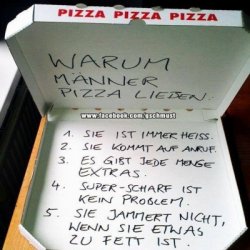 PIZZA PIZZA PIZZA
WARUM
MÄNNER
PIZZA LIEBEN.
www.facebook.com/gschmust
1. SIE IST IMMER HEISS.
2. SIE KOMMT AUF ANRUF.
3. ES GIBT JEDE MENGE
EXTRAS.
4. SUPER-SCHARF IST
KEIN PROBLEM.
5. SIE JAMMERT NICHT,
WENN SIE ETWAS
ZU FETT IST.